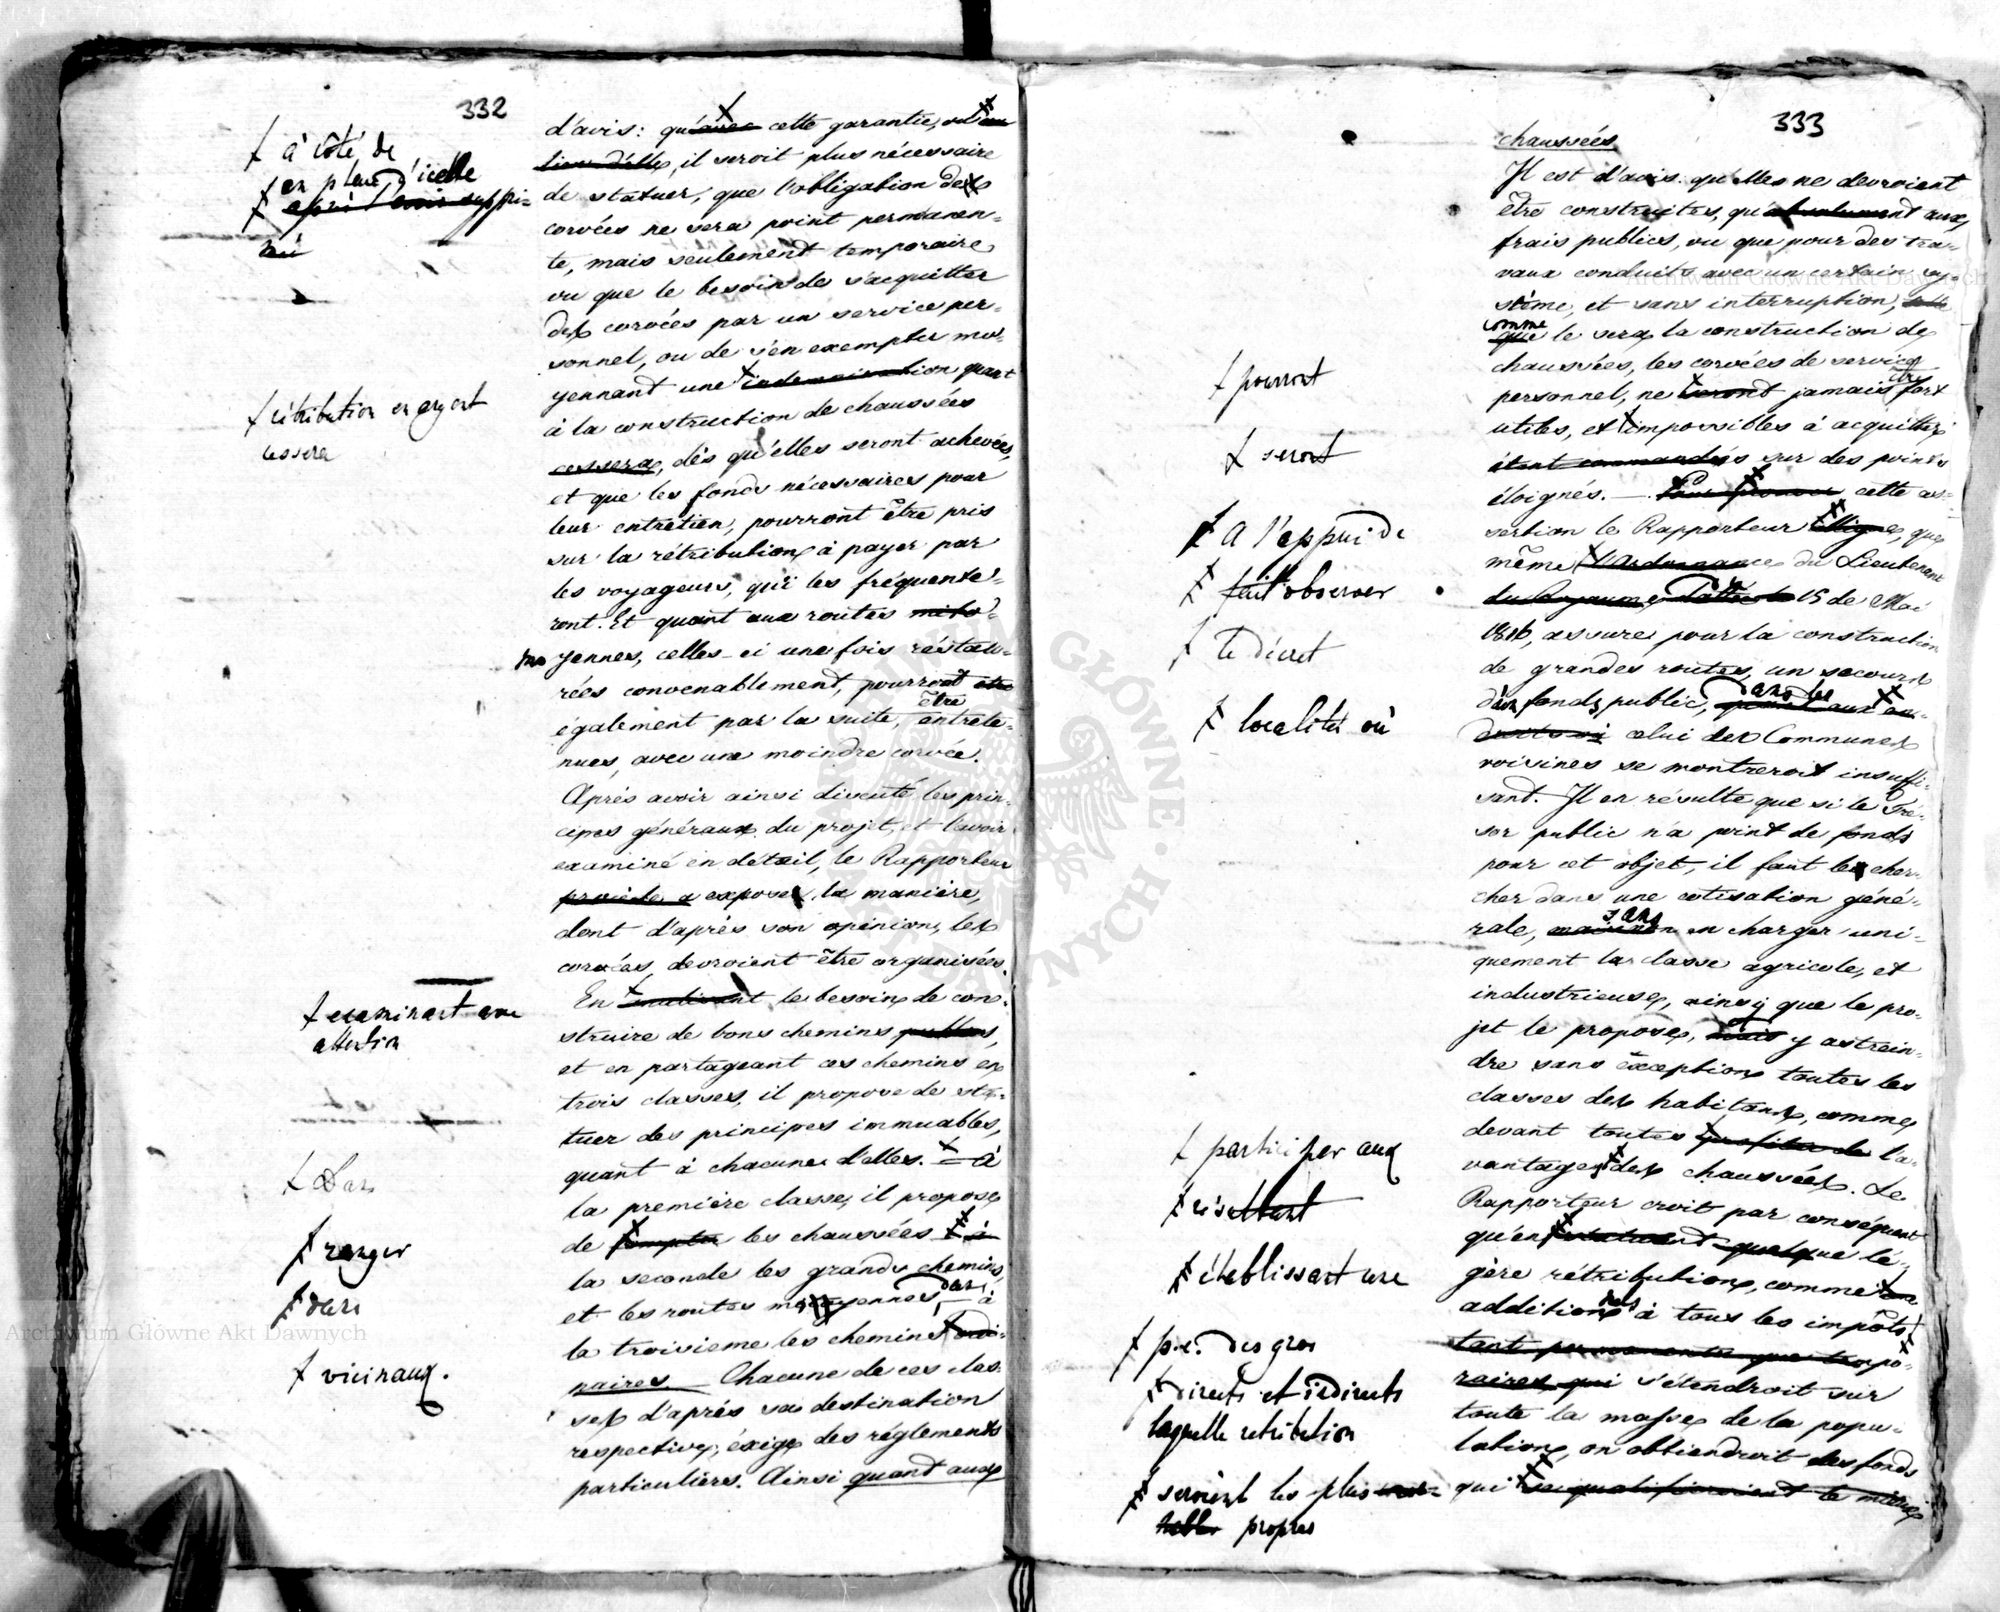 332
ɫ à côté de
ɫ en place d'icelle
après l'avoir suppri-
mé
ɫ rétribution en argent
cessera
ɫ examinant avec
attention
ɫ Dans
ɫ ranger
ɫ dans
ɫ vicinaux.
d'avis: qu'avec cette garantie, ou au
lieu d'elle, il seroit plus nécessaire
de statuer, que l'obligation des
corvées ne sera point permanen-
te, mais seulement temporaire
vu que le besoin de s'acquitter
des corvées par un service per-
sonnel, ou de s'en exempter mo-
yennant une indemnisation quant
à la construction de chaussées
cessera, dès qu'elles seront achevées,
et que les fonds nécessaires pour
leur entretien, pourront être pris
sur la rétribution à payer par
les voyageurs, qui les fréquente-
ront. Et quant aux routes mito-
yennes, celles-ci une fois réstau-
rées convenablement, pourront etre
également par la suite, être entrete-
nues, avec une moindre corvée.
Après avoir ainsi discuté les prin-
cipes généraux du projet, et l'avoir
examiné en détail, le Rapporteur
a exposé la manière,
dont d'après son opinion, les
corvées, devroient être organisées.
En le besoin de con-
struire de bons chemins publics,
et en partageant ces chemins en
trois classes, il propose de sta-
tuer des principes immuables,
quant à chacune d'elles. — à
la première classe, il propose
de compter les chaussées à
la seconde les grands chemins,
et les routes mitoyennes, dans à
la troisieme les chemins ordi-
naires. — Chacune de ces clas-
ses d'après sa destination
respective, éxige des réglements
particuliers. Ainsi quant aux
333
ɫ pourront
ɫ seront
ɫ A l'appui de
ɫ fait observer
ɫ le décret
ɫ localités où
ɫ participer aux
ɫ établissant une
ɫ p.e. des gros
ɫ directs et indirects
laquelle rétribution
ɫ seroient les plus
propres
chaussées
Il est d'avis qu'elles ne devroient
être construites, qu'absolument aux
frais publics, vu que pour des tra-
vaux conduits avec un certain sy-
stême, et sans interruption, telle
comme que le sera la construction de
chaussées, les corvées de service
personnel, ne seront jamais être fort
utiles, et impossibles à acquitter
étant commandées sur des points
éloignés. — Pour prouver cette as-
sertion le Rapporteur allègue, que
même l'Ordonnance du Lieutenant
du Royaume 15 de Mai
1816, assure pour la construction
de grandes routes, un secours
des fonds public, dans les
endroits où celui des Communes
voisines se montreroit insuffi-
sant. Il en résulte que si le Tré-
sor public n'a point de fonds
pour cet objet, il faut les cher-
cher dans une cotisation géné-
rale, sans en charger uni-
quement la classe agricole, et
industrieuse, ainsi que le pro-
jet le propose, mais y astrein-
dre sans éxception toutes les
classes des habitans, comme
devant toutes profiter de l'a-
vantage des chaussées. Le
Rapporteur croit par conséquent
qu'en quelque lé-
gère rétribution, comme
additions à tous les impôts
tant permanents que tempo-
raires, qui s'étendroit sur
toute la masse de la popu-
lation, on obtiendroit des fonds
qui